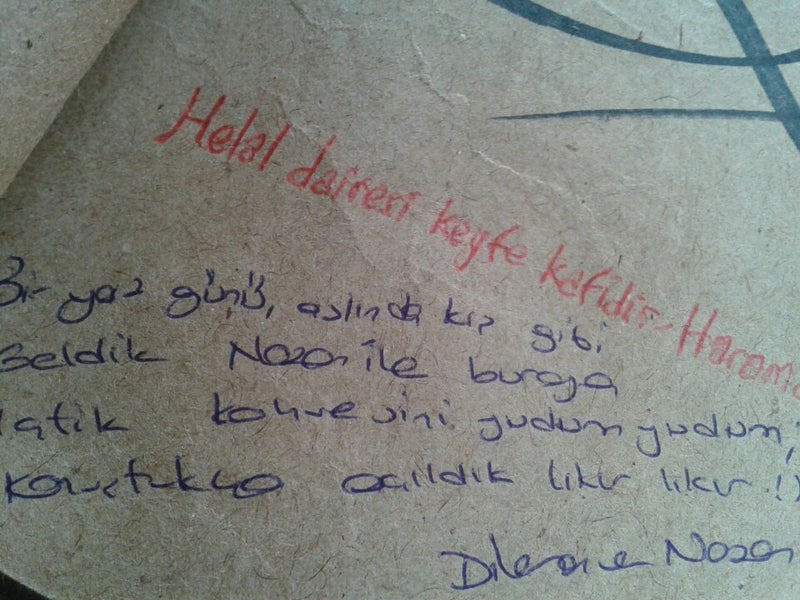 Helal dairesi keyfe kafidir - Harama
Bir yaz günü, aslında kış gibi
Geldik Nazan ile buraya
İçtik kahvesini yudum yudum,
Konuştukça açıldık lıkır lıkır !)
Nazan